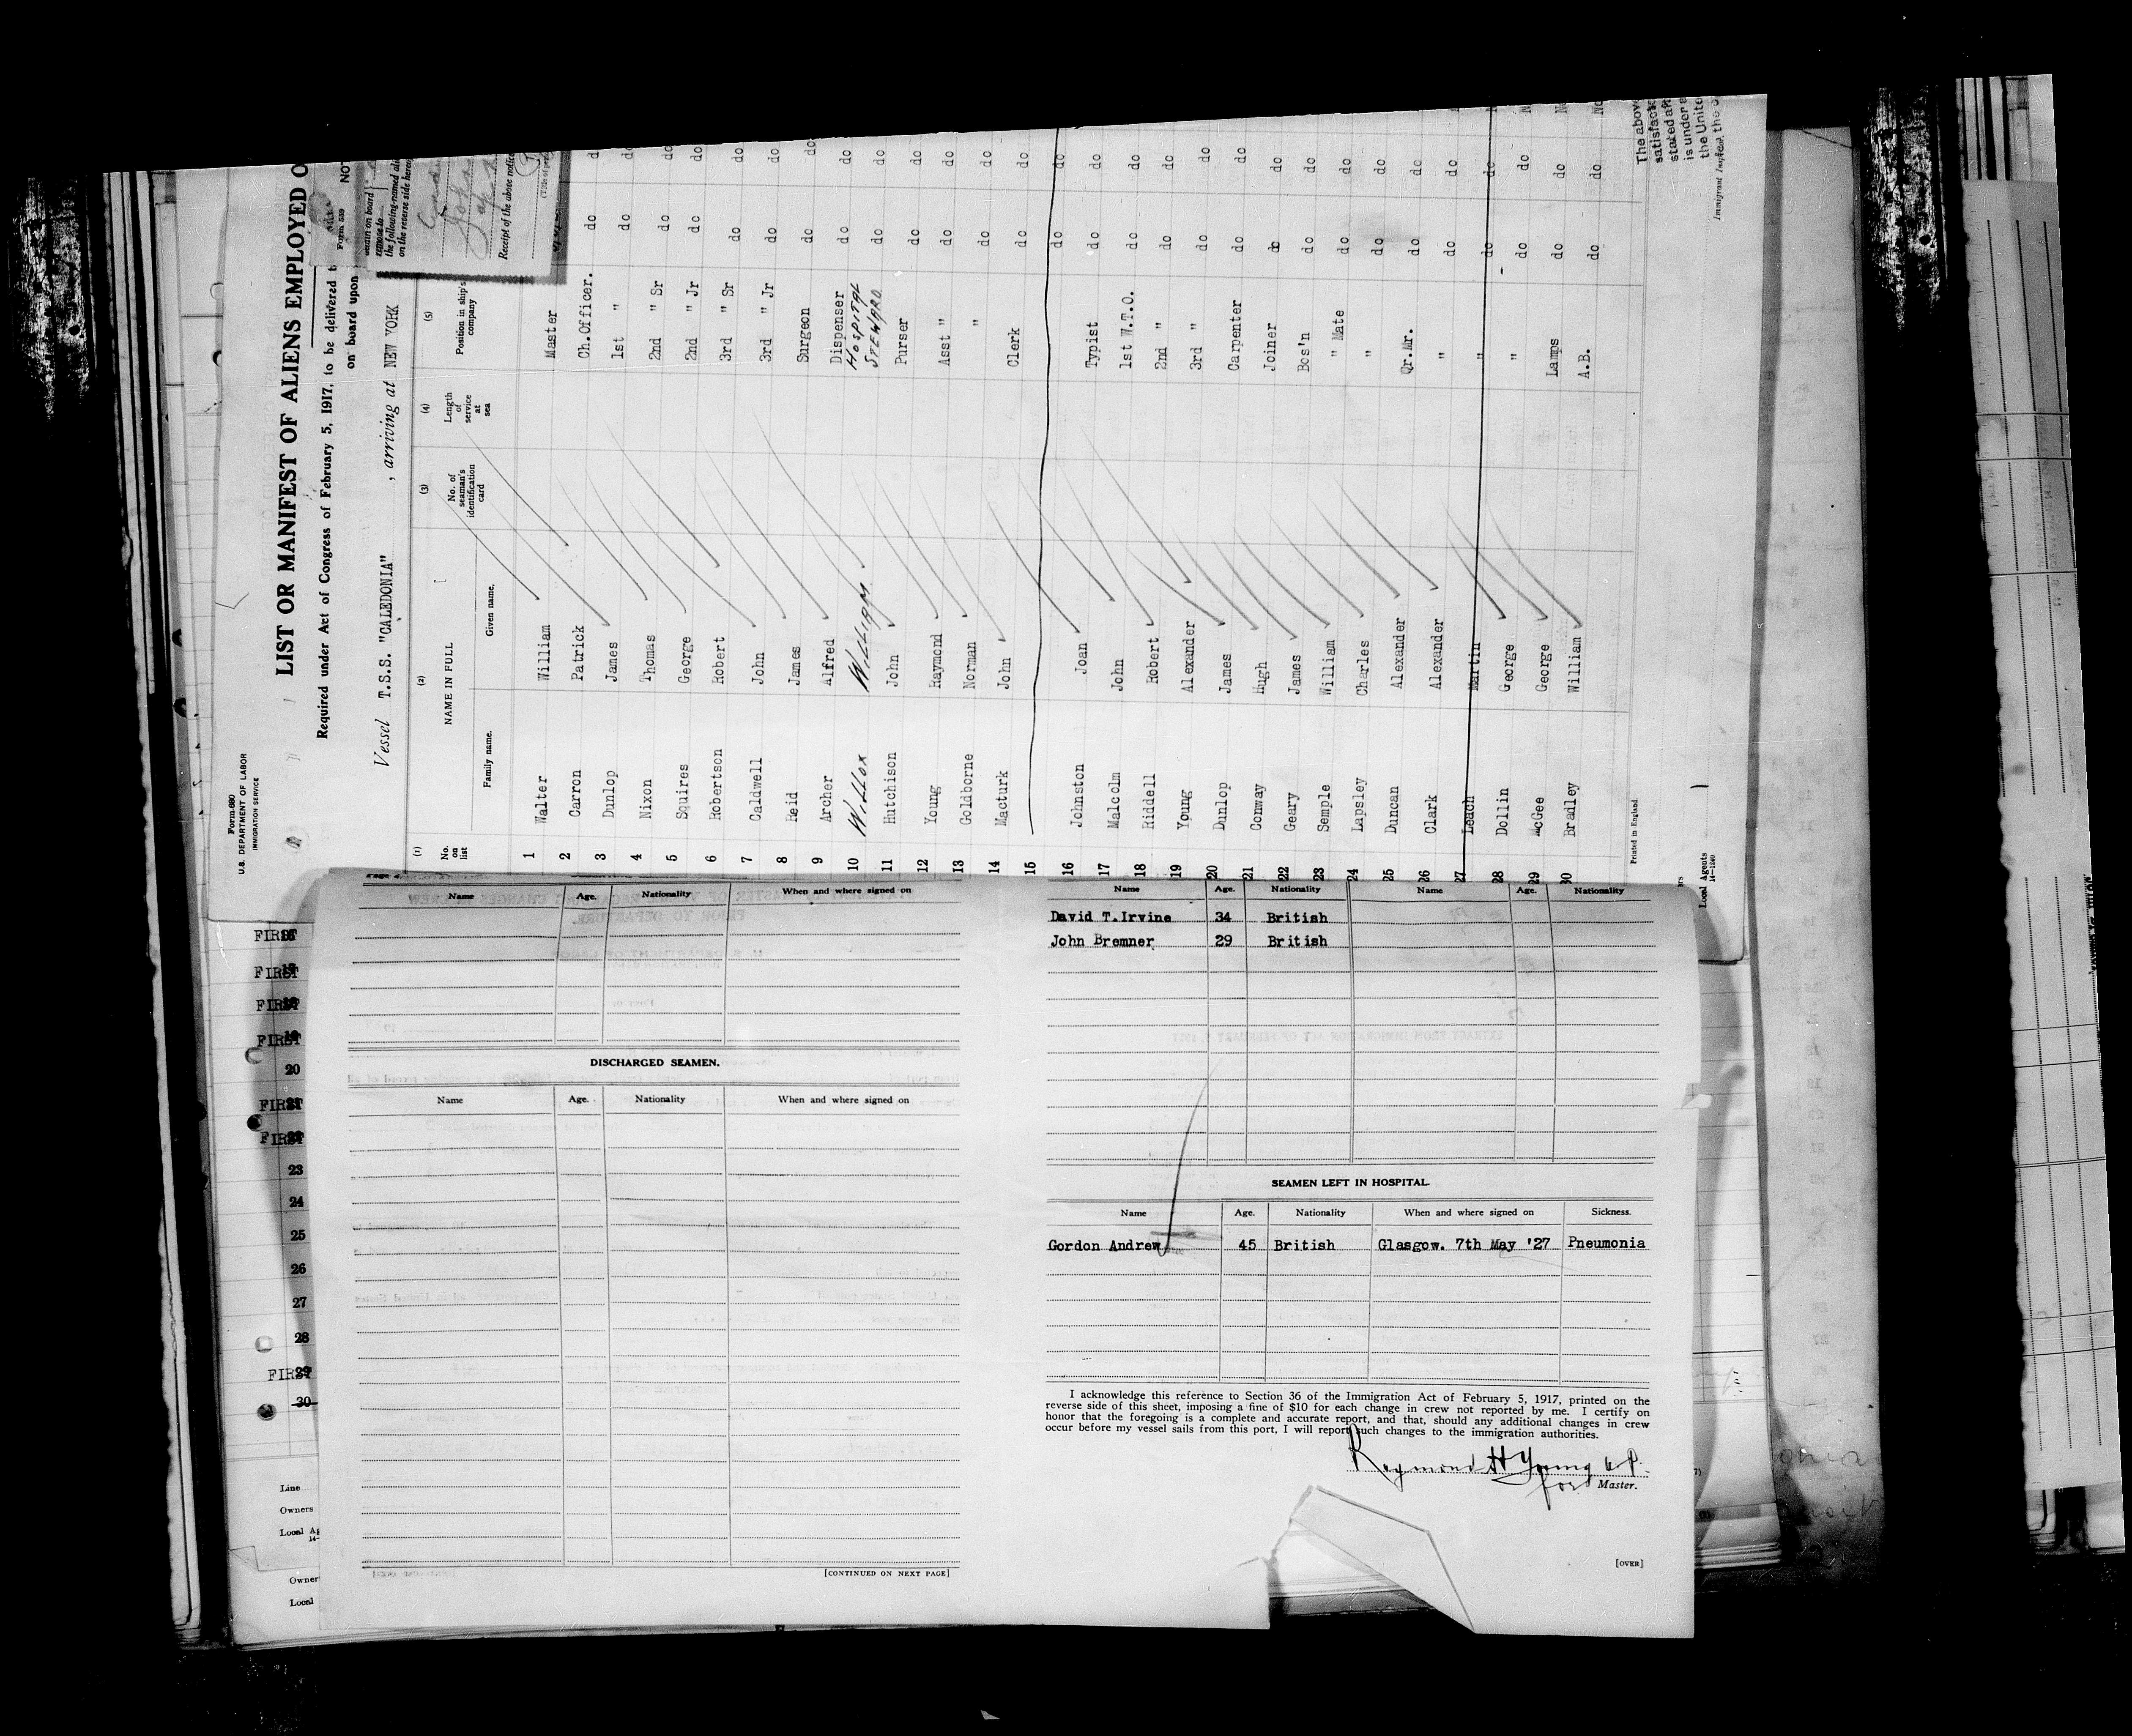 Form 680
U.S. DEPARTMENT OF LABOR
IMMIGRATION SERVICE
LIST OR MANIFEST OF ALIENS EMPLOYED O
Required under Act of Congress of February 5, 1917, to be delivered t
on board upon
Vessel T.S.S. "CALEDONIA" , arriving at NEW YORK
Form 539
NOT
the following-named ali
on the reverse side hereo
Receipt of the above notice
(1) (2) (3) (4) (5)
No. on list NAME IN FULL No. of seaman's identification card Length of service at sea Position in ship's company
Family name. Given name.
1 Walter William Master
2 Carron Patrick Ch.Officer. do d
3 Dunlop James 1st " do do
4 Nixon Thomas 2nd " Sr do do
5 Squires George 2nd " Jr do do
6 Robertson Robert 3rd " Sr do do
7 Caldwell John 3rd " Jr do do
8 Reid James Surgeon do do
9 Archer Alfred Dispenser do do
10 WILLOX WILLIAM HOSPITAL STEWARD do do
11 Hutchison John Purser do do
12 Young Raymond Asst " do do
13 Goldborne Norman " do do
14 Macturk John Clerk do do
15 do do
16 Johnston Joan Typist do do
17 Malcolm John 1st W.T.O. do do
18 Riddell Robert 2nd " do do
19 Young Alexander 3rd " do do
20 Dunlop James Carpenter do do
21 Conway Hugh Joiner do do
22 Geary James Bos'n do do
23 Semple William " Mate do do
24 Lapsley Charles " do do
25 Duncan Alexander Qr.Mr. do do
26 Clark Alexander " do do
27 Leach Martin " do do
28 Dollin George " do do
29 McGee George Lamps do do
30 Bradley William A.B. do do
Printed in England
Local Agents
14-1240
The above
satisfact
stated aft
is under s
the Unite
Immigrant Inspector
FIRST
FIRST 17
FIRST
FIRST 19
20
FIRST 21
FIRST
23
24
25
26
27
28
FIRST 29
30
Line
Owners
Local Ag
14-
Owner
Local
Name Age. Nationality When and where signed on
DISCHARGED SEAMEN.
Name Age. Nationality When and where signed on
[CONTINUED ON NEXT PAGE]
Name Age. Nationality Name Age. Nationality
David T.Irvine 34 British
John Bremner 29 British
SEAMEN LEFT IN HOSPITAL.
Name Age. Nationality When and where signed on Sickness.
Gordon Andrew 45 British Glasgow. 7th May '27 Pneumonia
I acknowledge this reference to Section 36 of the Immigration Act of February 5, 1917, printed on the
reverse side of this sheet, imposing a fine of $10 for each change in crew not reported by me. I certify on
honor that the foregoing is a complete and accurate report, and that, should any additional changes in crew
occur before my vessel sails from this port, I will report such changes to the immigration authorities.
Raymond H Young
for Master.
[OVER]